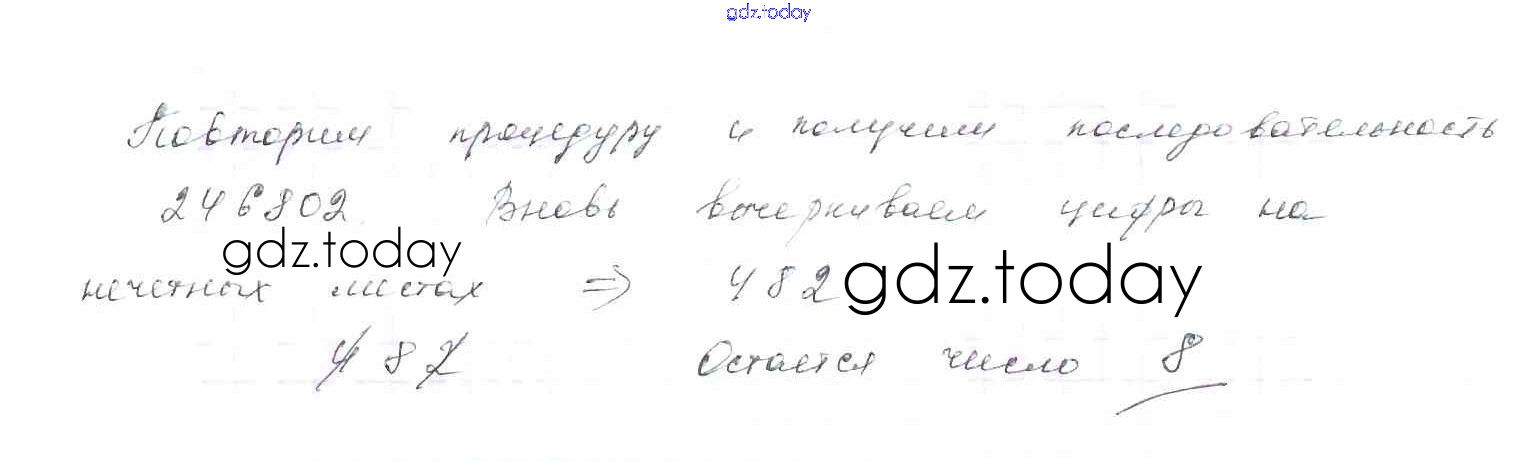 gdz.today
Повторим процедуру и получим последовательность
246802. Вновь вычеркиваем цифры на
gdz.today
нечетных местах ⇒ 482 gdz.today
4 8 2 Остается число 8